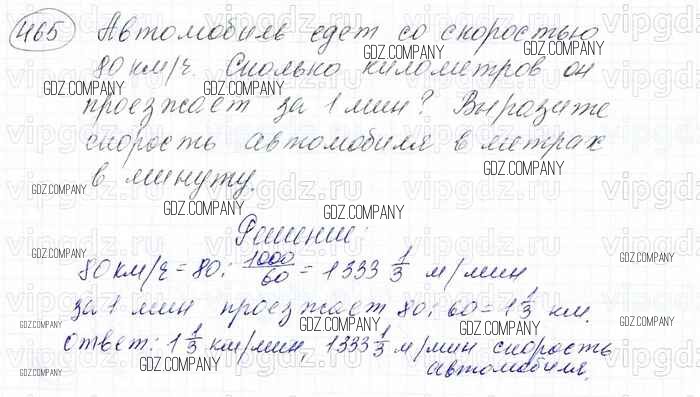 465 Автомобиль едет со скоростью
80 км/ч. Сколько километров он
проезжает за 1 мин? Выразите
скорость автомобиля в метрах
в минуту.
Решение:
80 км/ч = 80 : 1000/60 = 1333 1/3 м/мин
за 1 мин проезжает 80 : 60 = 1 1/3 км.
ответ: 1 1/3 км/мин, 1333 1/3 м/мин скорость
автомобиля.
GDZ.COMPANY
vipgdz.ru